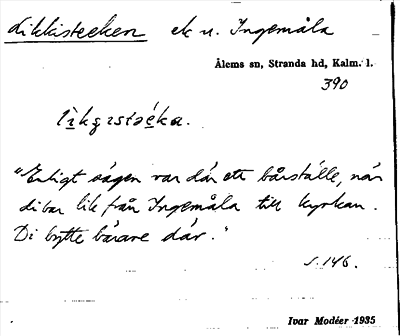 Likkisteeken ek n. Ingemåla
Ålems sn, Stranda hd, Kalm. l.
390
"Enligt sägen var där ett bårställe, när
di bar lik från Ingemåla till kyrkan.
Di bytte bärare där."
s. 146.
Ivar Modéer 1935